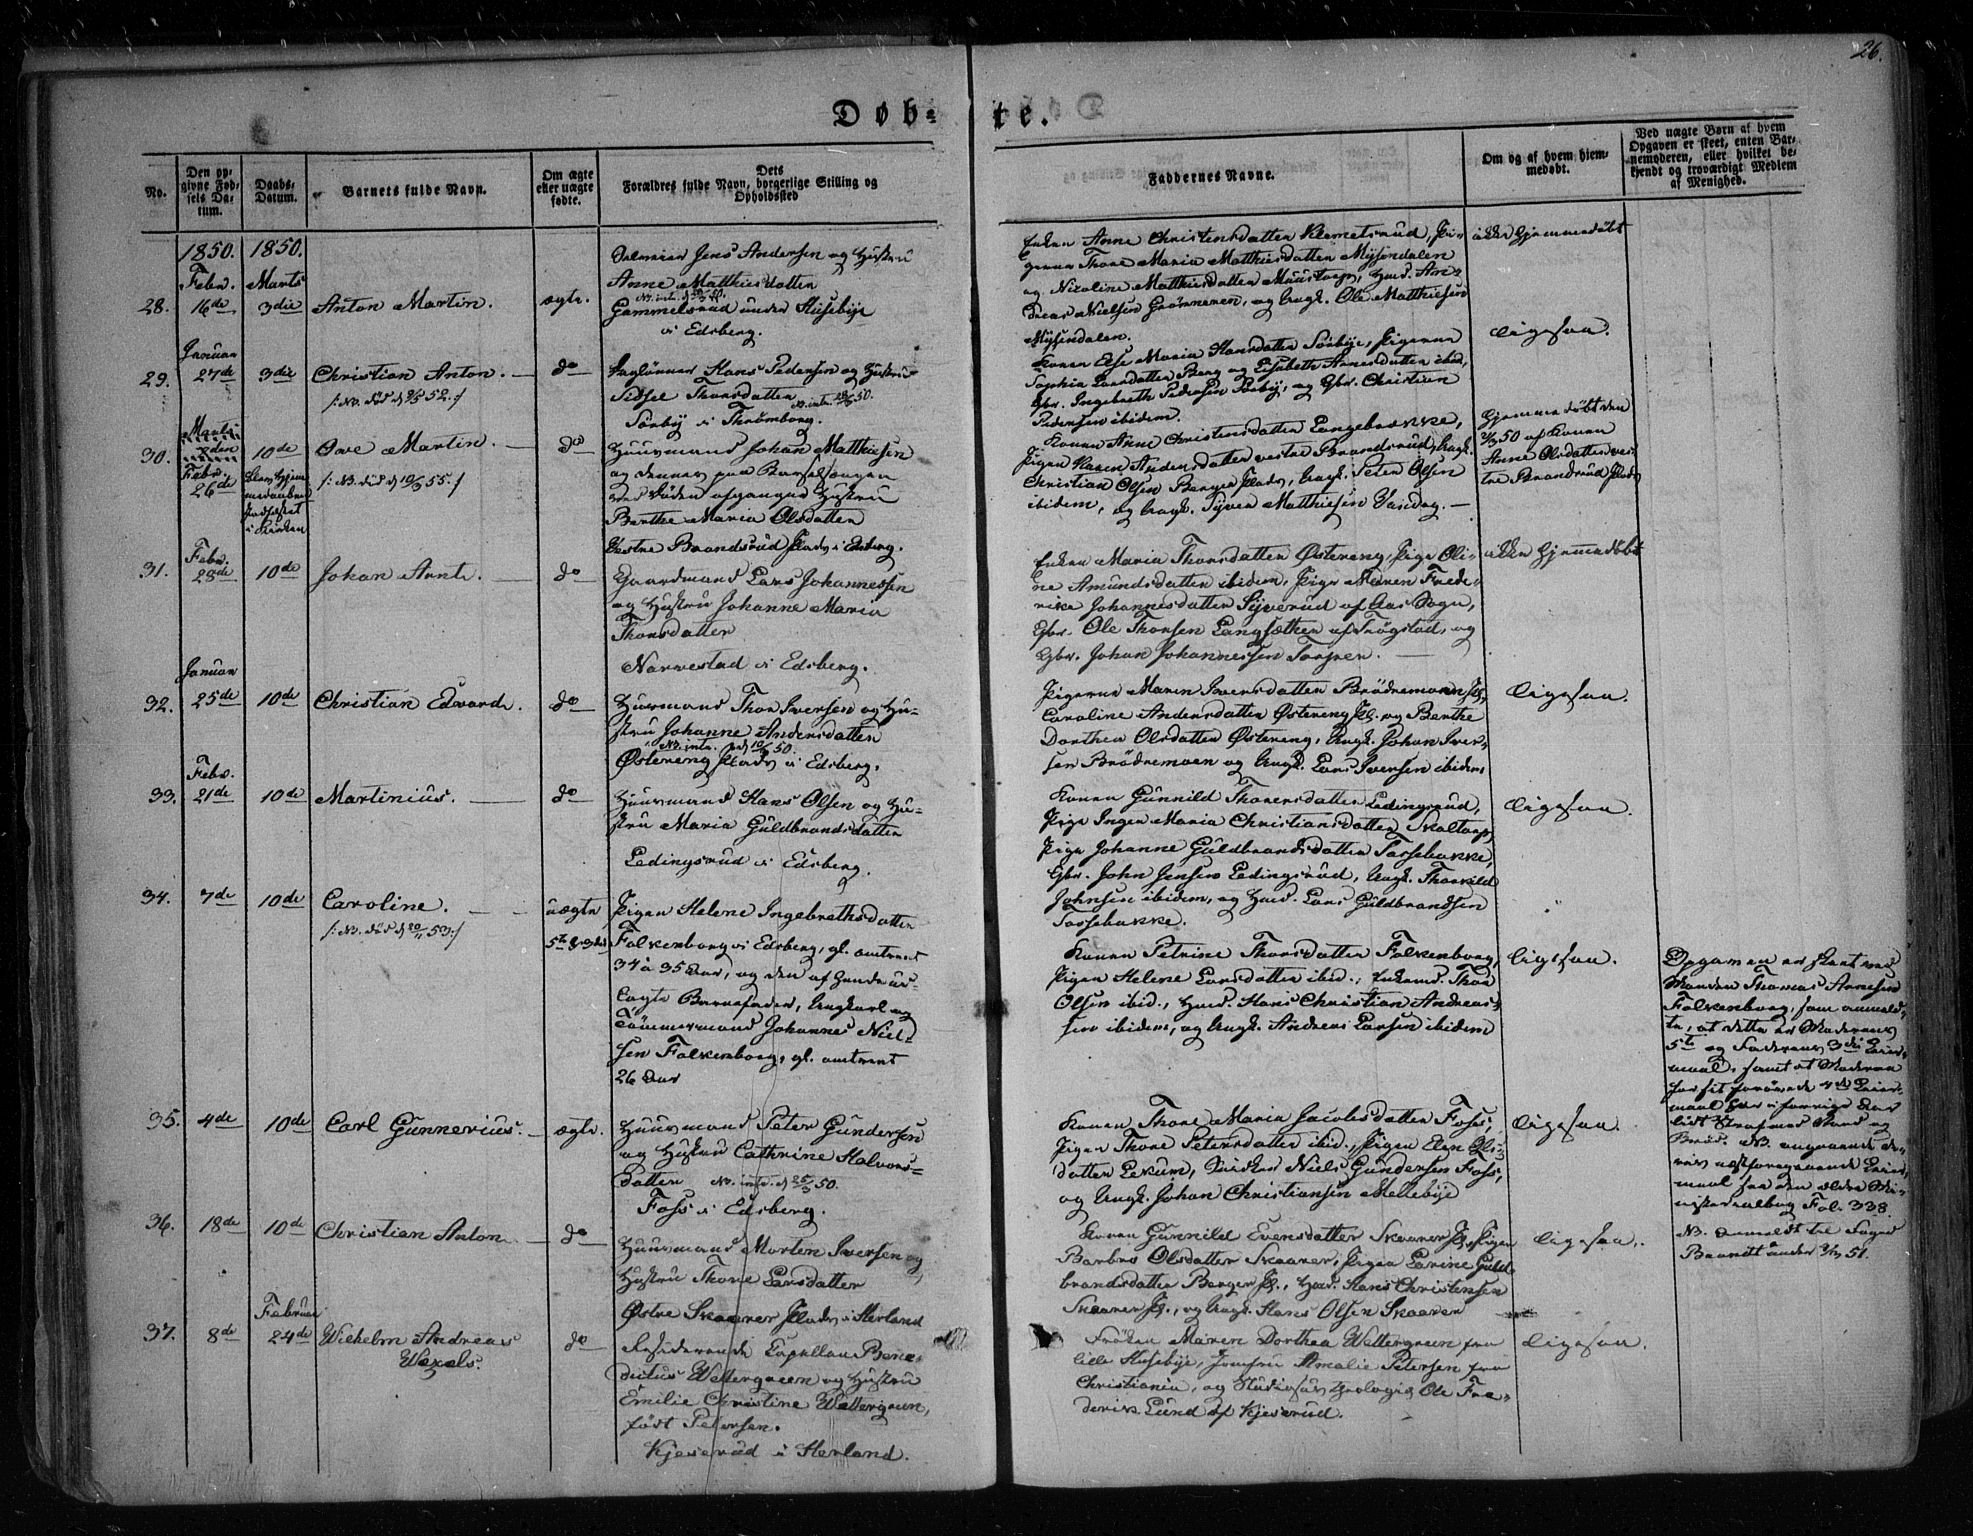 26.
Døb-
te.
No.
Den op-
givne Fød-
sels Da-
tum.
Daabs-
Datum.
Barnets fulde Navn.
Om ægte
eller uægte
fødte.
Dets
Forældres fulde Navn, borgerlige Stilling og
Opholdssted
Faddernes Navne.
Om og af hvem hjem-
medøbt.
Ved uægte Børn af hvem
Opgaven er skeet, enten Bar-
nemoderen, eller hvilket be-
kjendt og troværdigt Medlem
af Menighed.
1850. 1850.
Febr. Marts
28. 16de 3die Anton Martin. ægte.
Jens Andersen og Hustru
Anne Matthiesdatter
Gammelsrud under Husebye
i Edsberg.
Enken Anne Christensdatter Klemetsrud, Pi-
gerne Thore Maria Matthisdatter Mysendalen
og Nicoline Matthisdatter Muustorp, An-
dreas Nielsen Grønneren, og Ungk. Ole Matthiesen
Mysendalen.
ikke hjemmedøbt
Januar
29. 27de 3die Christian Anton. do
/: NB. død d 52. :/
Daglønner Hans Pedersen og Hustru
Sidsel Thorsdatter
Sørby i Thrømborg.
Konen Else Maria Hansdatter Sørbye, Pigerne
Sophia Larsdatter Berg og Elisabeth Arnesdatter ibid,
Gbr. Ingebreth Pedersen Sørby, og Gbr. Christian
Pedersen ibidem.
Ligesaa.
Marts
30. Febr. 26de 10de Ove Martin. do
/: NB. død d 10/5 55. :/
Huusmand Johan Matthiesen
og dennes paa Barselsengen
ved Døden afgangne Hustru
Berthe Maria Olsdatter
Vestre Brandsrud Plads i Edsberg.
Konen Anne Christensdatter Langebakke,
Pigen Karen Andersdatter vestre Brandsrud, Ungk.
Christian Olsen Berger Plads, Ungk. Peter Olsen
ibidem, og Ungk. Syver Matthiesen
Hjemmedøbt den
50 af Konen
Anne Olsdatter ves-
tre Brandsrud Plads
Febr.
31. 28de 10de Johan Arnt. do
Gaardmand Lars Johannessen
og Hustru Johanne Maria
Thorsdatter
Narvestad i Edsberg.
Enken Maria Thorsdatter Østereng, Pige Oli-
ne Amundsdatter ibidem, Pige Maren Frede-
rikke Johannesdatter Syverud af Aas Sogn,
Gbr. Ole Thorsen Langsæther af Trøgstad, og
Gbr. Johan Johannessen Torper.
ikke hjemmedøbt
Januar
32. 25de 10de Christian Edvard. do
Huusmand Thor Iversen og Hu-
stru Johanne Andersdatter
NB. intr. d 10/3 50.
Østereng Plads i Edsberg.
Pigerne Maren Iversdatter Brødremoen Pl,
Caroline Andersdatter Østereng Pl. og Berthe
Dorthea Olsdatter Østereng, Ungk. Johan Iver-
sen Brødremoen og Ungk. Lars Iversen ibidem
Ligesaa.
Febr.
33. 21de 10de Martinius. do
Huusmand Hans Olsen og Hu-
stru Maria Guldbrandsdatter
Ledingsrud i Edsberg.
Konen Gunnild Thoresdatter Ledingsrud,
Pige Inger Maria Christiansdatter Skoltorp,
Pige Johanne Guldbrandsdatter Tossebakke,
Gbr. John Jensen Ledingsrud, Ungk. Thorkild
Johnsen ibidem, og Lars Guldbrandsen
Tossebakke.
Ligesaa.
34. 7de 10de Caroline. uægte
/: NB. død d 20/11 53 :/
Pigen Helene Ingebrethsdatter
Falkenborg i Edsberg, gl. omtrent
34 à 35 Aar, og den af hende ud-
lagte Barnefader, Ungkarl og
Tømmermand Johannes Niel-
sen Falkenborg, gl. omtrent
26 Aar
Konen Petrine Thorsdatter Falkenborg,
Pigen Helene Larsdatter ibid., Enkemd. Thor
Olsen ibid., Hans Christian Andreas-
sen ibidem, og Ungk. Andreas Larsen ibidem
Ligesaa.
Opgaven er skeet ved
Manden Thomas Arnesen
Falkenborg, som anmeld-
te, at dette er Moderens
5te og Faderens 3die Leier-
maal, samt at Moderen
for sit forrige 4de Leier-
maal har i forrige Aar
lidt Straf Vand og
Brød. NB. angaaende de-
res næstforegaaende Leier-
maal see den ældre Mi-
nisterialbog Fol. 338.
35. 4de 10de Carl Gunnerius. ægte.
Huusmand Peter Gundersen
og Hustru Cathrine Halvors-
datter NB. intr. d 25/3 50.
Foss i Edsberg.
Konen Thore Maria Jacobsdatter Foss,
Pigen Thore Petersdatter ibid., Pigen Elen
datter Lekum, Niels Gundersen Foss,
og Ungk. Johan Christiansen Mellebye
Ligesaa.
36. 18de 10de Christian Anton do
Huusmand Morten Iversen og
Hustru Thore Larsdatter
Østre Skaarer Plads i Herland
Konen Gunnild Evensdatter Skaarer Pl, Pigen
Barbro Olsdatter Skaarer, Pigen Larine Guld-
brandsdatter Berger Pl., Hans Christensen
Skaarer Pl., og Ungk. Hans Olsen Skaarer
Ligesaa.
NB. anmeldt til Foged
Brandt under 51.
Februar
37. 8de 24de Wilhelm Andreas
Wexels. do
Residerende Capellan Bene-
dictus Wettergreen og Hustru
Emilie Christine Wettergreen,
født Petersen.
Kjeserud i Herland.
Frøken Maren Dorthea Wettergreen fra
lille Husebye, Jomfru Amalie Petersen fra
Christiania, og Studiosus theologiæ Ole Fre-
derik Lund af Kjeserud.
Ligesaa.